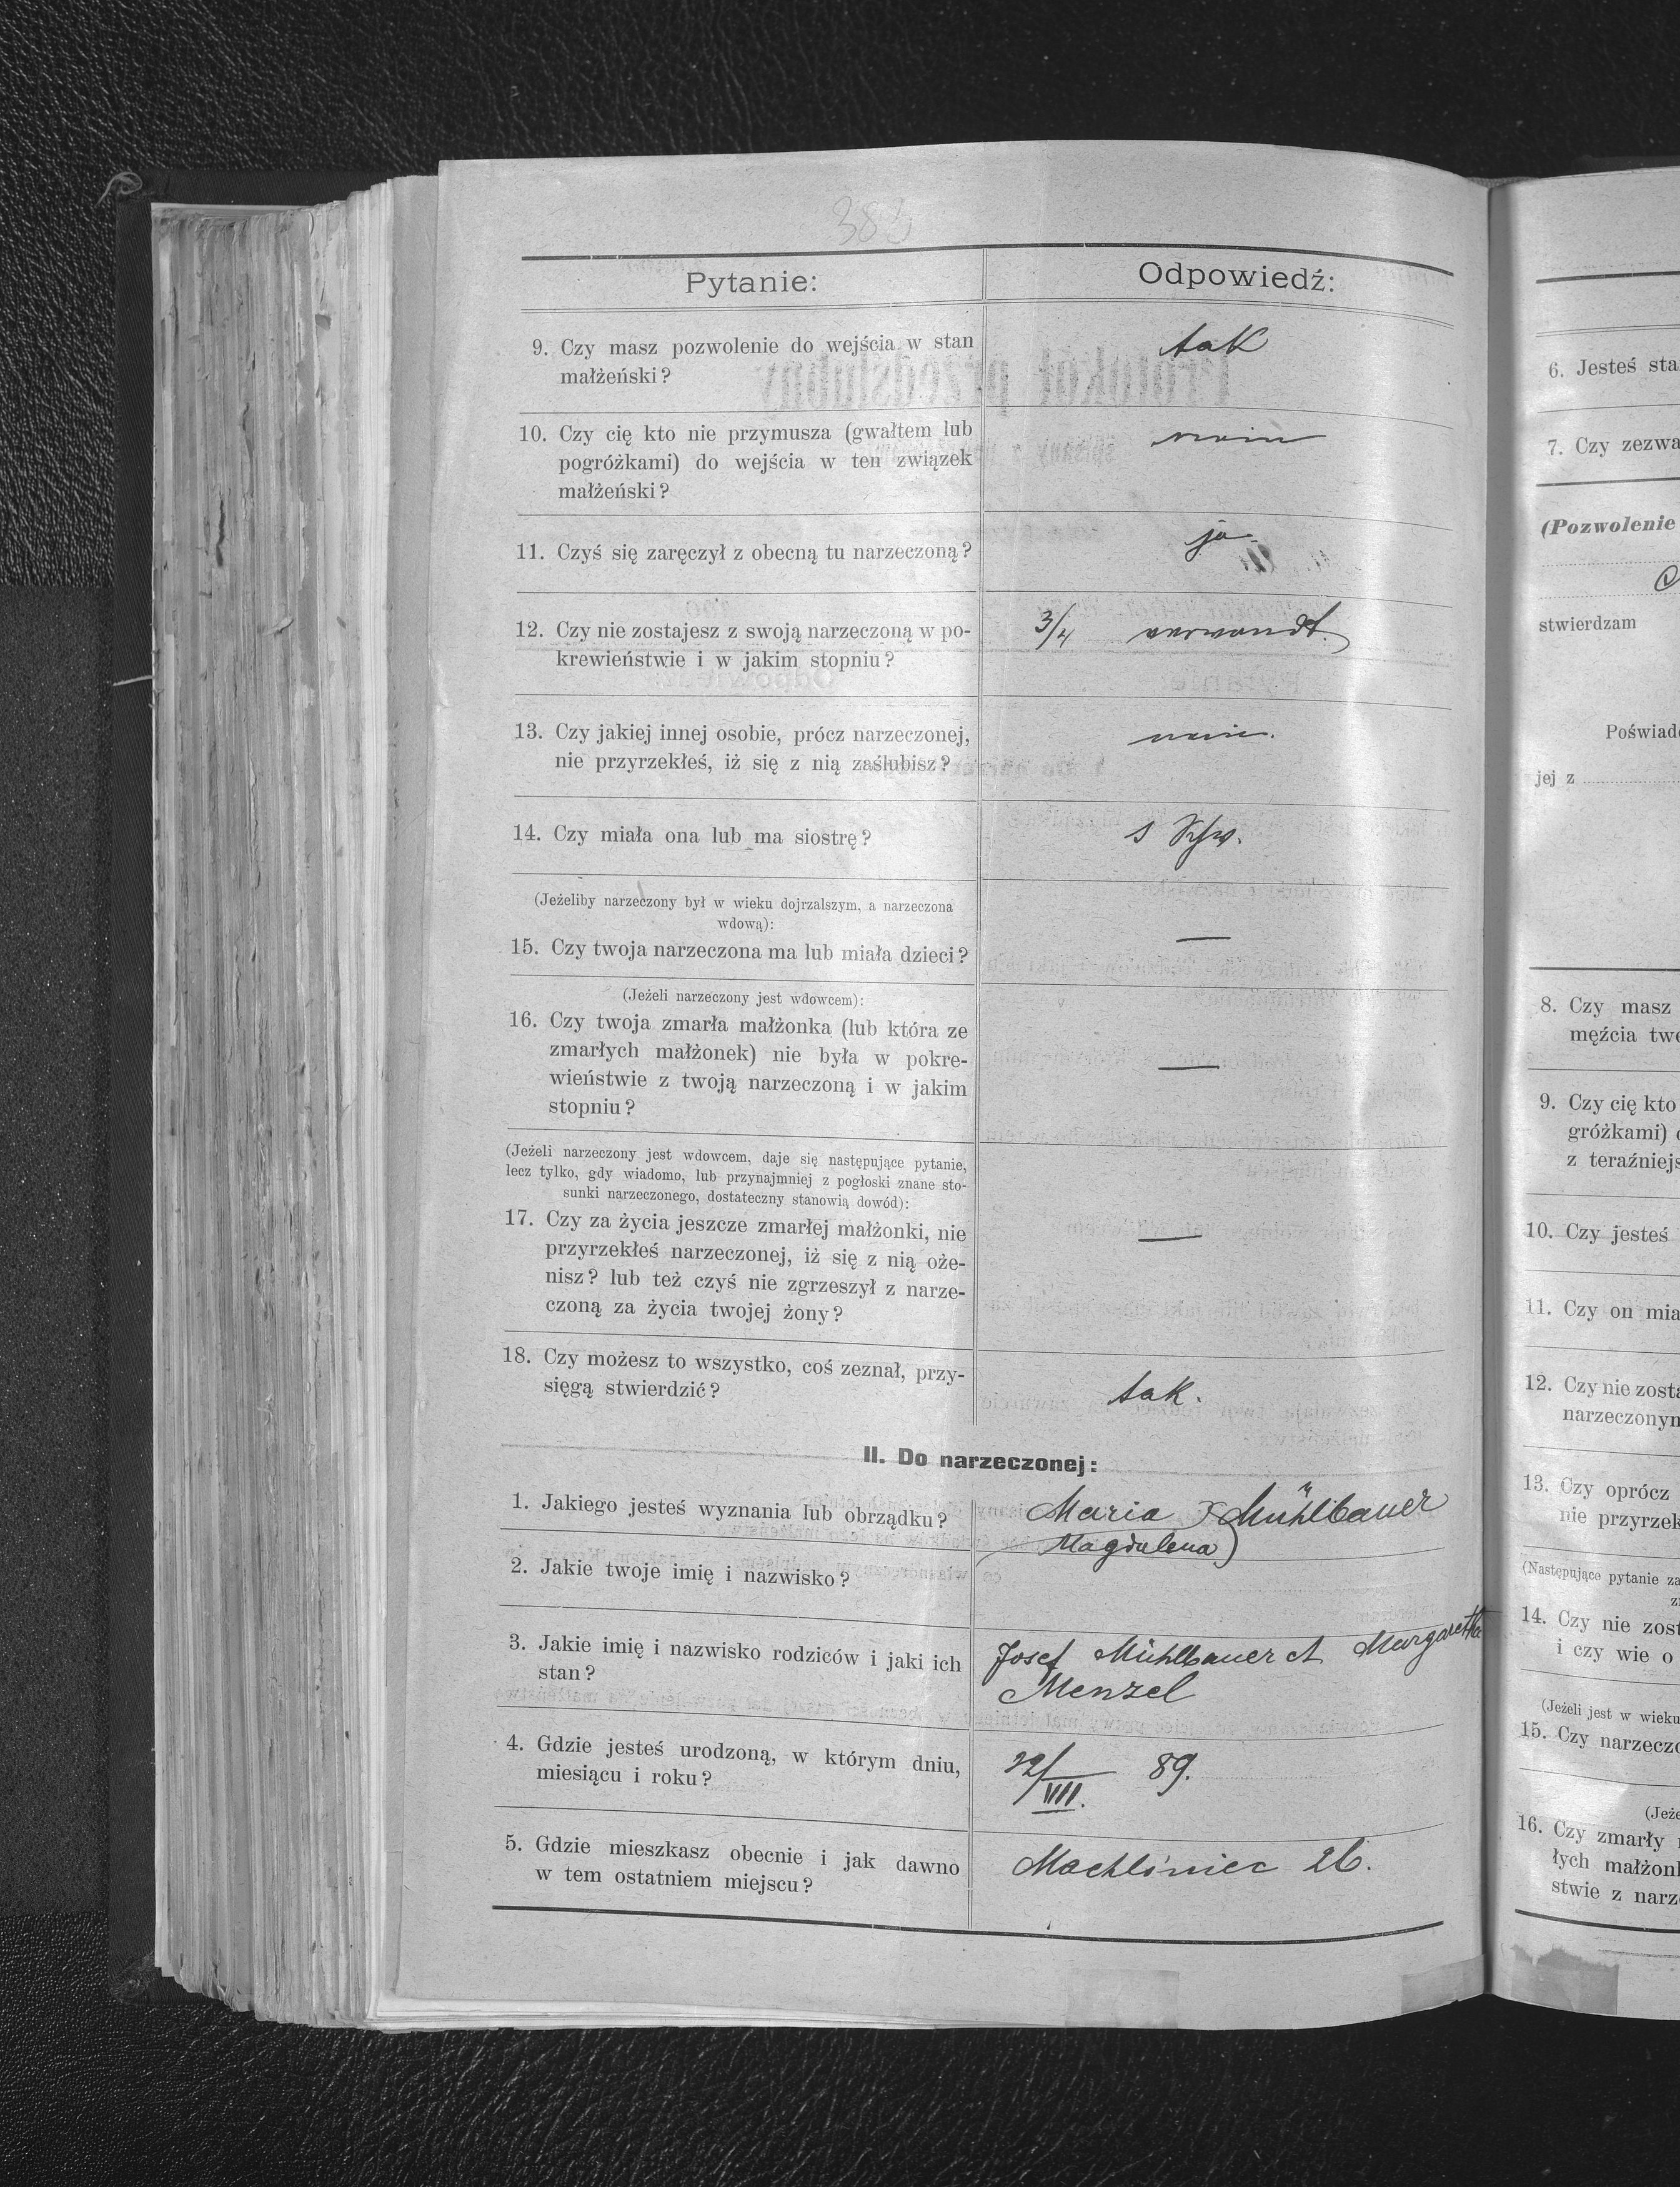 383
Pytanie:
Odpowiedź:
9. Czy masz pozwolenie do wejścia w stan
małżeński?
tak
10. Czy cię kto nie przymusza (gwałtem lub
pogróżkami) do wejścia w ten związek
małżeński?
nein
11. Czyś się zaręczył z obecną tu narzeczoną?
ja.
12. Czy nie zostajesz z swoją narzeczoną w po-
krewieństwie i w jakim stopniu?
3/4 verwandt.
13. Czy jakiej innej osobie, prócz narzeczonej,
nie przyrzekłeś, iż się z nią zaślubisz?
nein.
14. Czy miała ona lub ma siostrę?
1 Schw.
(Jeżeliby narzeczony był w wieku dojrzalszym, a narzeczona
wdową):
15. Czy twoja narzeczona ma lub miała dzieci?
—
(Jeżeli narzeczony jest wdowcem):
16. Czy twoja zmarła małżonka (lub która ze
zmarłych małżonek) nie była w pokre-
wieństwie z twoją narzeczoną i w jakim
stopniu?
—
(Jeżeli narzeczony jest wdowcem, daje się następujące pytanie,
lecz tylko, gdy wiadomo, lub przynajmniej z pogłoski znane sto-
sunki narzeczonego, dostateczny stanowią dowód):
17. Czy za życia jeszcze zmarłej małżonki, nie
przyrzekłeś narzeczonej, iż się z nią oże-
nisz? lub też czyś nie zgrzeszył z narze-
czoną za życia twojej żony?
—
18. Czy możesz to wszystko, coś zeznał, przy-
sięgą stwierdzić?
tak.
II. Do narzeczonej:
1. Jakiego jesteś wyznania lub obrządku?
Maria Mühlbauer
Magdalena)
2. Jakie twoje imię i nazwisko?
3. Jakie imię i nazwisko rodziców i jaki ich
stan?
Josef Mühlbauer et Margaretha
Menzel
4. Gdzie jesteś urodzoną, w którym dniu,
miesiącu i roku?
22/VIII. 89.
5. Gdzie mieszkasz obecnie i jak dawno
w tem ostatniem miejscu?
Machliniec 26.
6. Jesteś sta
7. Czy zezwa
(Pozwolenie
stwierdzam
Poświad
jej z
8. Czy masz
mężcia twe
9. Czy cię kto
gróżkami)
z teraźniejs
10. Czy jesteś
11. Czy on mia
12. Czy nie zosta
narzeczonym
13. Czy oprócz
nie przyrzek
(Następujące pytanie za
14. Czy nie zost
i czy wie o
(Jeżeli jest w wieku
15. Czy narzeczo
(Jeże
16. Czy zmarły
łych małżonk
stwie z narze